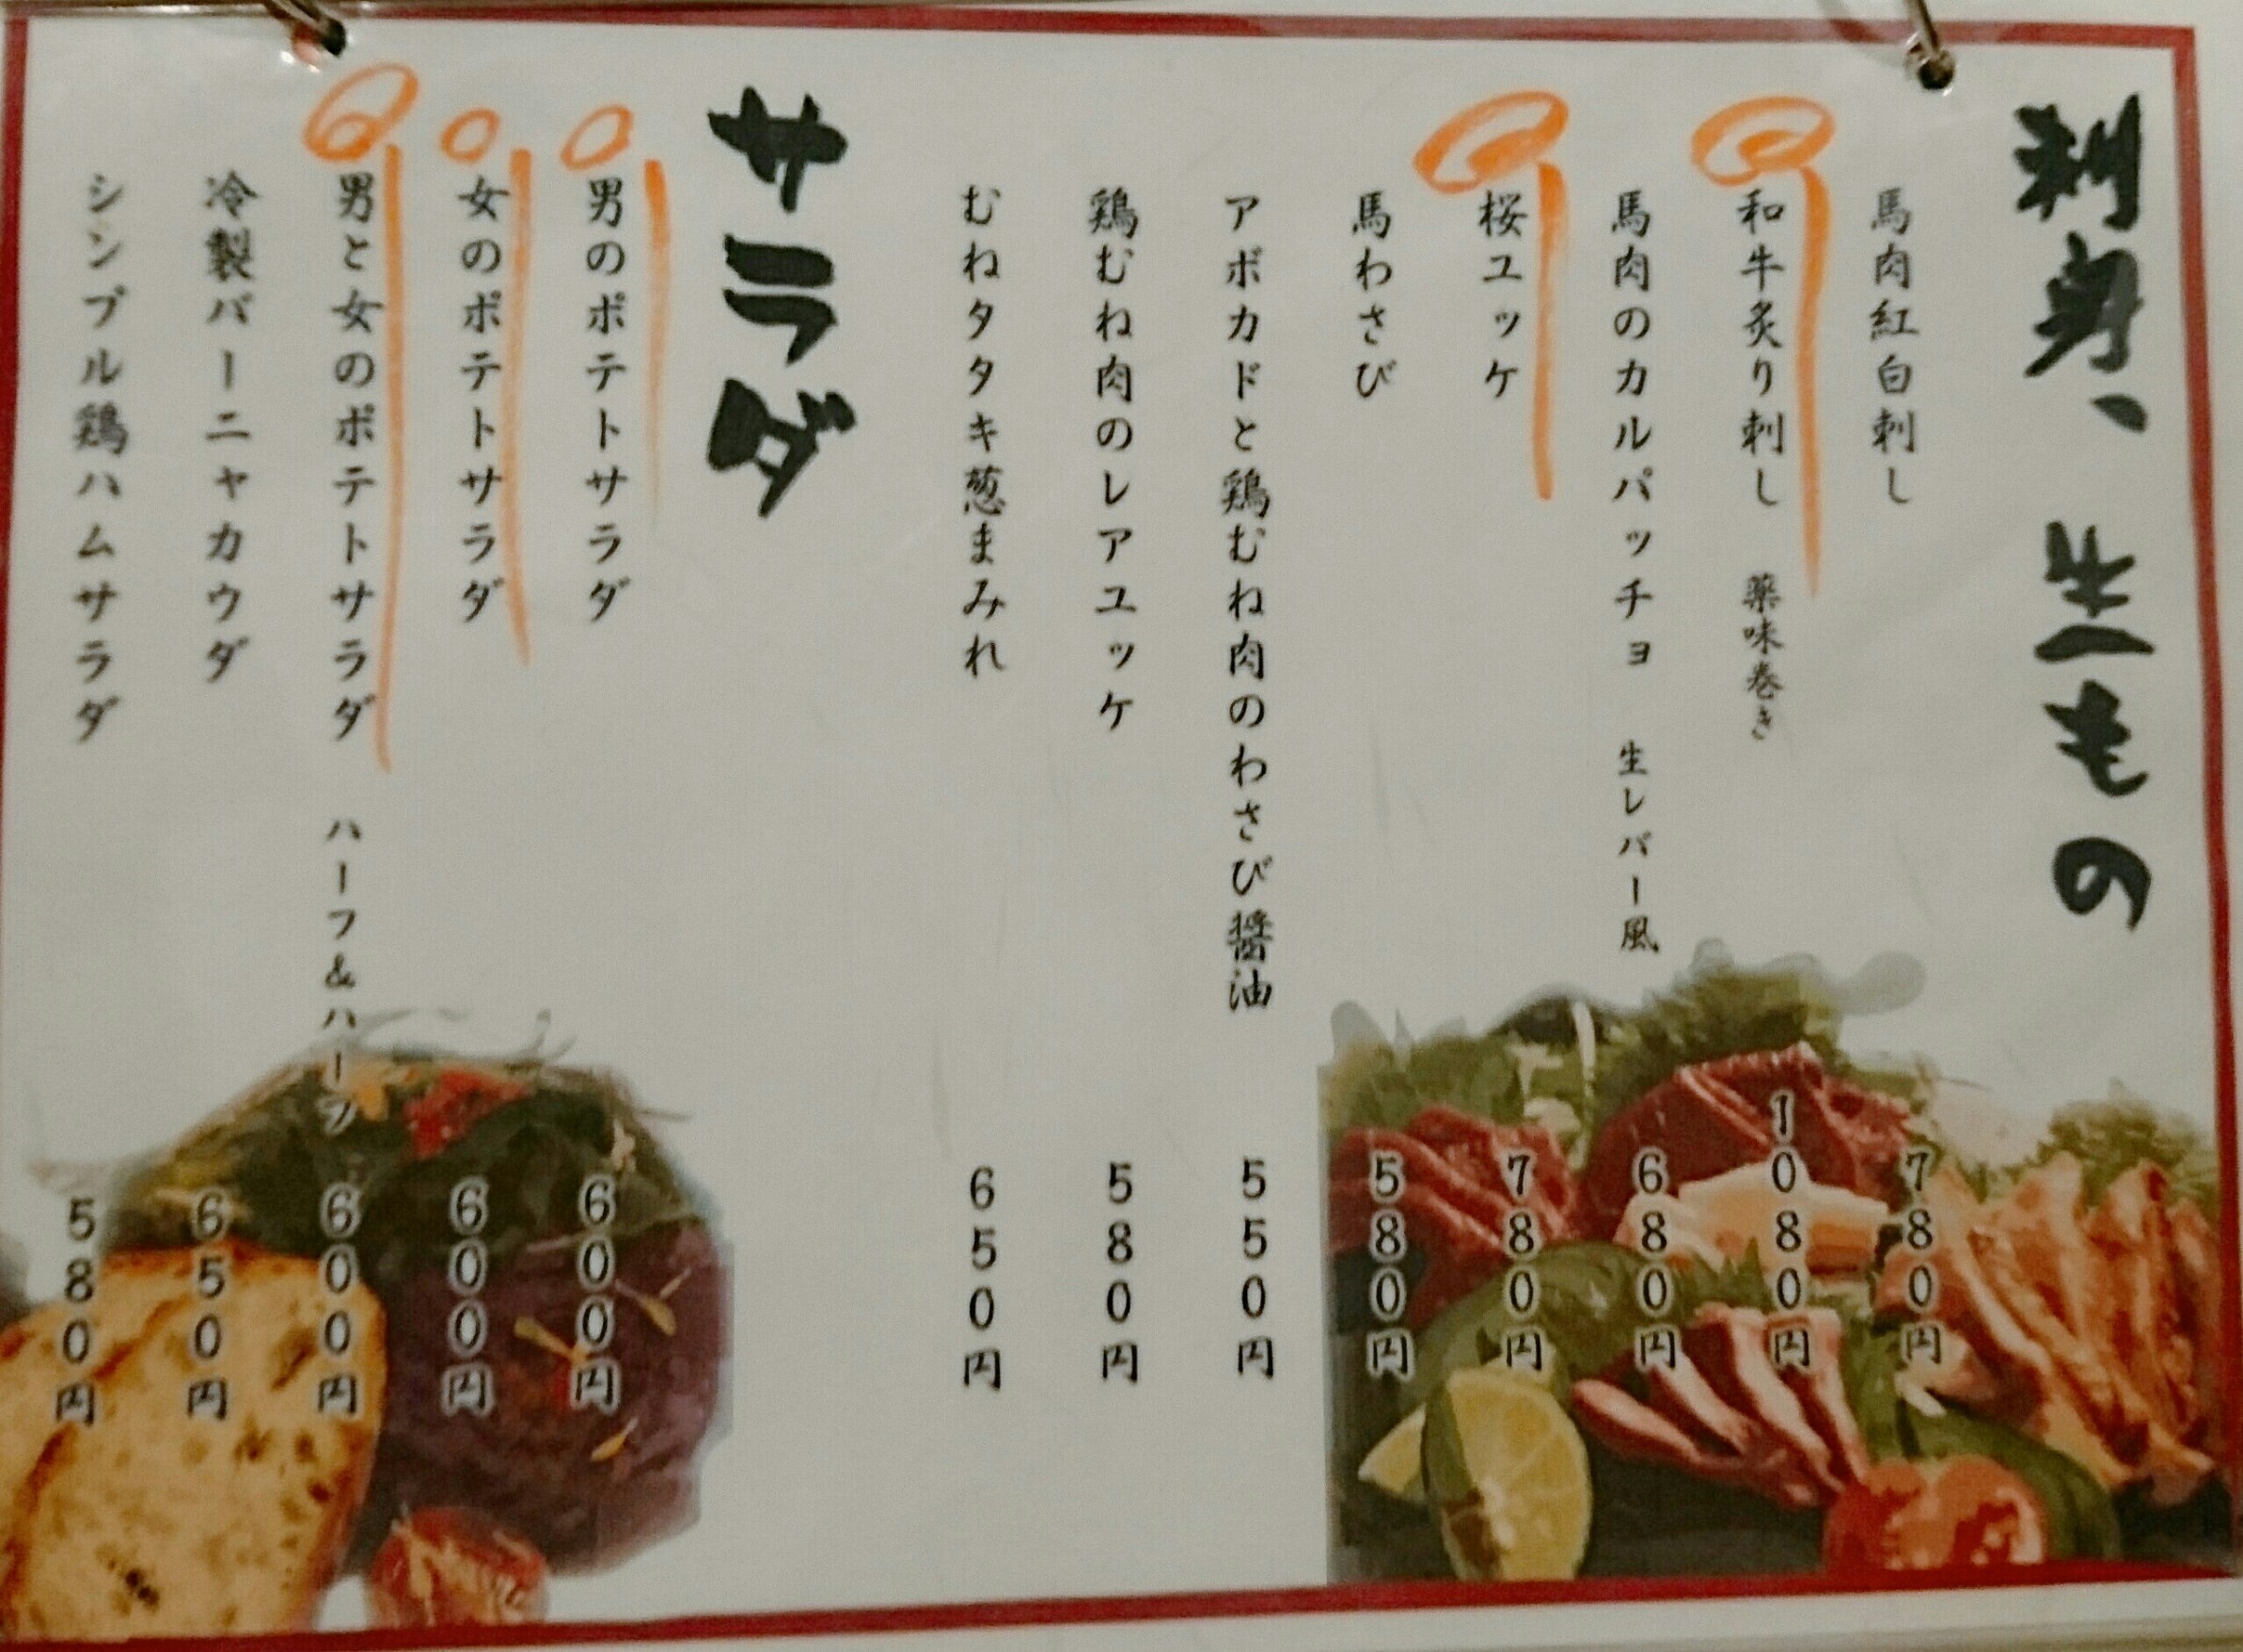 刺身、生もの
馬肉紅白刺し 780円
和牛炙り刺し 薬味巻き 1080円
馬肉のカルパッチョ 生レバー風 680円
桜ユッケ 780円
馬わさび 580円
アボカドと鶏むね肉のわさび醤油 550円
鶏むね肉のレアユッケ 580円
むねタタキ葱まみれ 650円
サラダ
男のポテトサラダ 600円
女のポテトサラダ 600円
男と女のポテトサラダ ハーフ&ハーフ 600円
冷製バーニャカウダ 650円
シンプル鶏ハムサラダ 580円